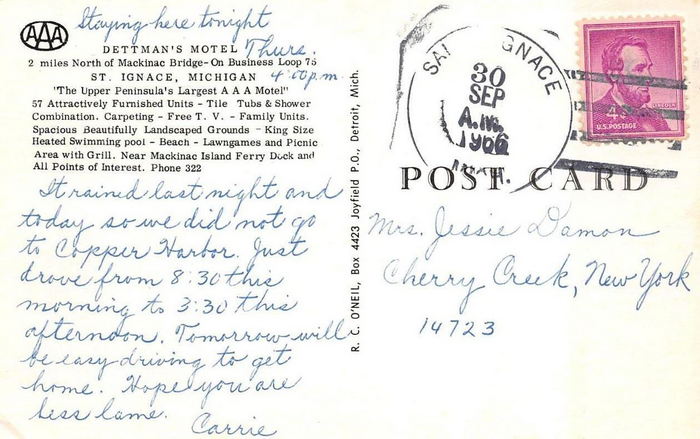 Staying here tonight
Thurs.
4:00 p.m.
AAA
DETTMAN'S MOTEL
2 miles North of Mackinac Bridge-On Business Loop 75
ST. IGNACE, MICHIGAN
'The Upper Peninsula's Largest A A A Motel"
57 Attractively Furnished Units - Tile Tubs & Shower
Combination. Carpeting - Free T. V. - Family Units.
Spacious Beautifully Landscaped Grounds - King Size
Heated Swimming pool - Beach - Lawngames and Picnic
Area with Grill. Near Mackinac Island Ferry Dock and
All Points of Interest. Phone 322
It rained last night and
today so we did not go
to Copper Harbor. Just
drove from 8:30 this
morning to 3:30 this
afternoon. Tomorrow will
be easy driving to get
home. Hope you are
less lame.
Carrie
R. C. O'NEIL, Box 4423 Joyfield P.O., Detroit, Mich.
SAI GNACE
30
SEP
A.M.
1966
MICH.
4¢
LINCOLN
U.S. POSTAGE
POST CARD
Mrs. Jessie Damon
Cherry Creek, New York
14723